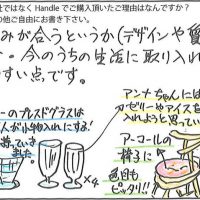 ではなく Handle でご購入頂いたご理由はなんですか?
の他ご自由にお書き下さい。
みが合うというか(デザインや
・今のうちの生活に取り入れ
すい点です。
アンナちゃんには
ゼリーやアイスを
入れようと思ってい
ーのブレスドグラスは
人が小物入れにする!
と言っていき
ました
×4
アーコールの
椅子に
色目も
ピッタリ!!